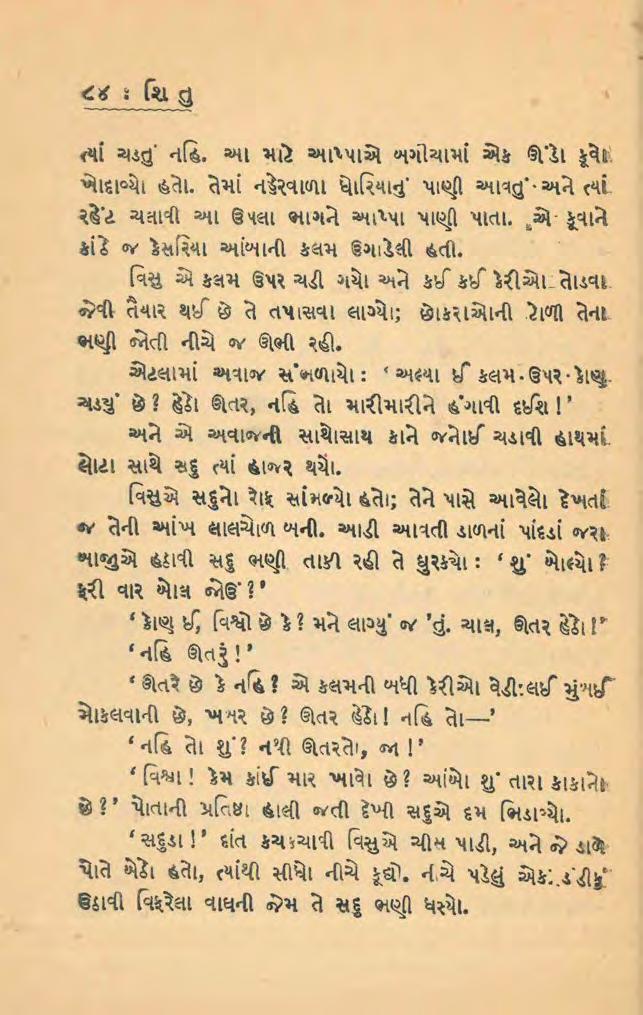 ૮૪ : શિ તુ
ત્યાં ચડતું નહિ. આ માટે આપ્પાએ બગીચામાં એક ઊંડો કૂવો
ખોદાવ્યો હતો. તેમાં નહેરવાળા ધોરિયાનું પાણી આવતું અને ત્યાં
રહેંટ ચલાવી આ ઉપલા ભાગને આપ્પા પાણી પાતા. એ કૂવાને
કાંઠે જ કેસરિયા આંબાની કલમ ઉગાડેલી હતી.
વિસુ એ કલમ ઉપર ચડી ગયો અને કઈ કઈ કેરીઓ તોડવા
જેવી તૈયાર થઈ છે તે તપાસવા લાગ્યો; છોકરાઓની ટોળી તેના
ભણી જોતી નીચે જ ઊભી રહી.
એટલામાં અવાજ સંભળાયો : ‘અલ્યા ઈ કલમ ઉપર કોણ
ચડયું છે? હેઠો ઊતર, નહિ તો મારીમારીને હંગાવી દઈશ!’
અને એ અવાજની સાથોસાથ કાને જનોઈ ચડાવી હાથમાં
લોટા સાથે સદુ ત્યાં હાજર થયો.
વિસુએ સદુનો રોફ સાંભળ્યો હતો; તેને પાસે આવેલો દેખતાં
જ તેની આંખ લાલચોળ બની. આડી આવતી ડાળનાં પાંદડાં જરા
બાજુએ હઠાવી સદુ ભણી તાકી રહી તે ઘુરક્યો : ‘શું બોલ્યો?
ફરી વાર બોલ જોઉં?’
‘કોણ ઈ, વિશ્વો છે કે? મને લાગ્યું જ ’તું. ચાલ, ઊતર હેઠો!’
‘નહિ ઊતરું!’
‘ઊતરે છે કે નહિ? એ કલમની બધી કેરીઓ વેડી લઈ મુંબઈ
મોકલવાની છે, ખબર છે? ઊતર હેઠો! નહિ તો—’
‘નહિ તો શું? નથી ઊતરતો, જા!’
‘વિશ્વા! કેમ કાંઈ માર ખાવો છે? આંબો શું તારા કાકાનો
છે?’ પોતાની પ્રતિષ્ઠા હાલી જતી દેખી સદુએ દમ ભિડાવ્યો.
‘સદુડા!’ દાંત કચકચાવી વિસુએ ચીસ પાડી, અને જે ડાળે
પોતે બેઠો હતો, ત્યાંથી સીધો નીચે કૂદ્યો. નીચે પડેલું એક દંડીકું
ઉઠાવી વિફરેલા વાઘની જેમ તે સદુ ભણી ધસ્યો.